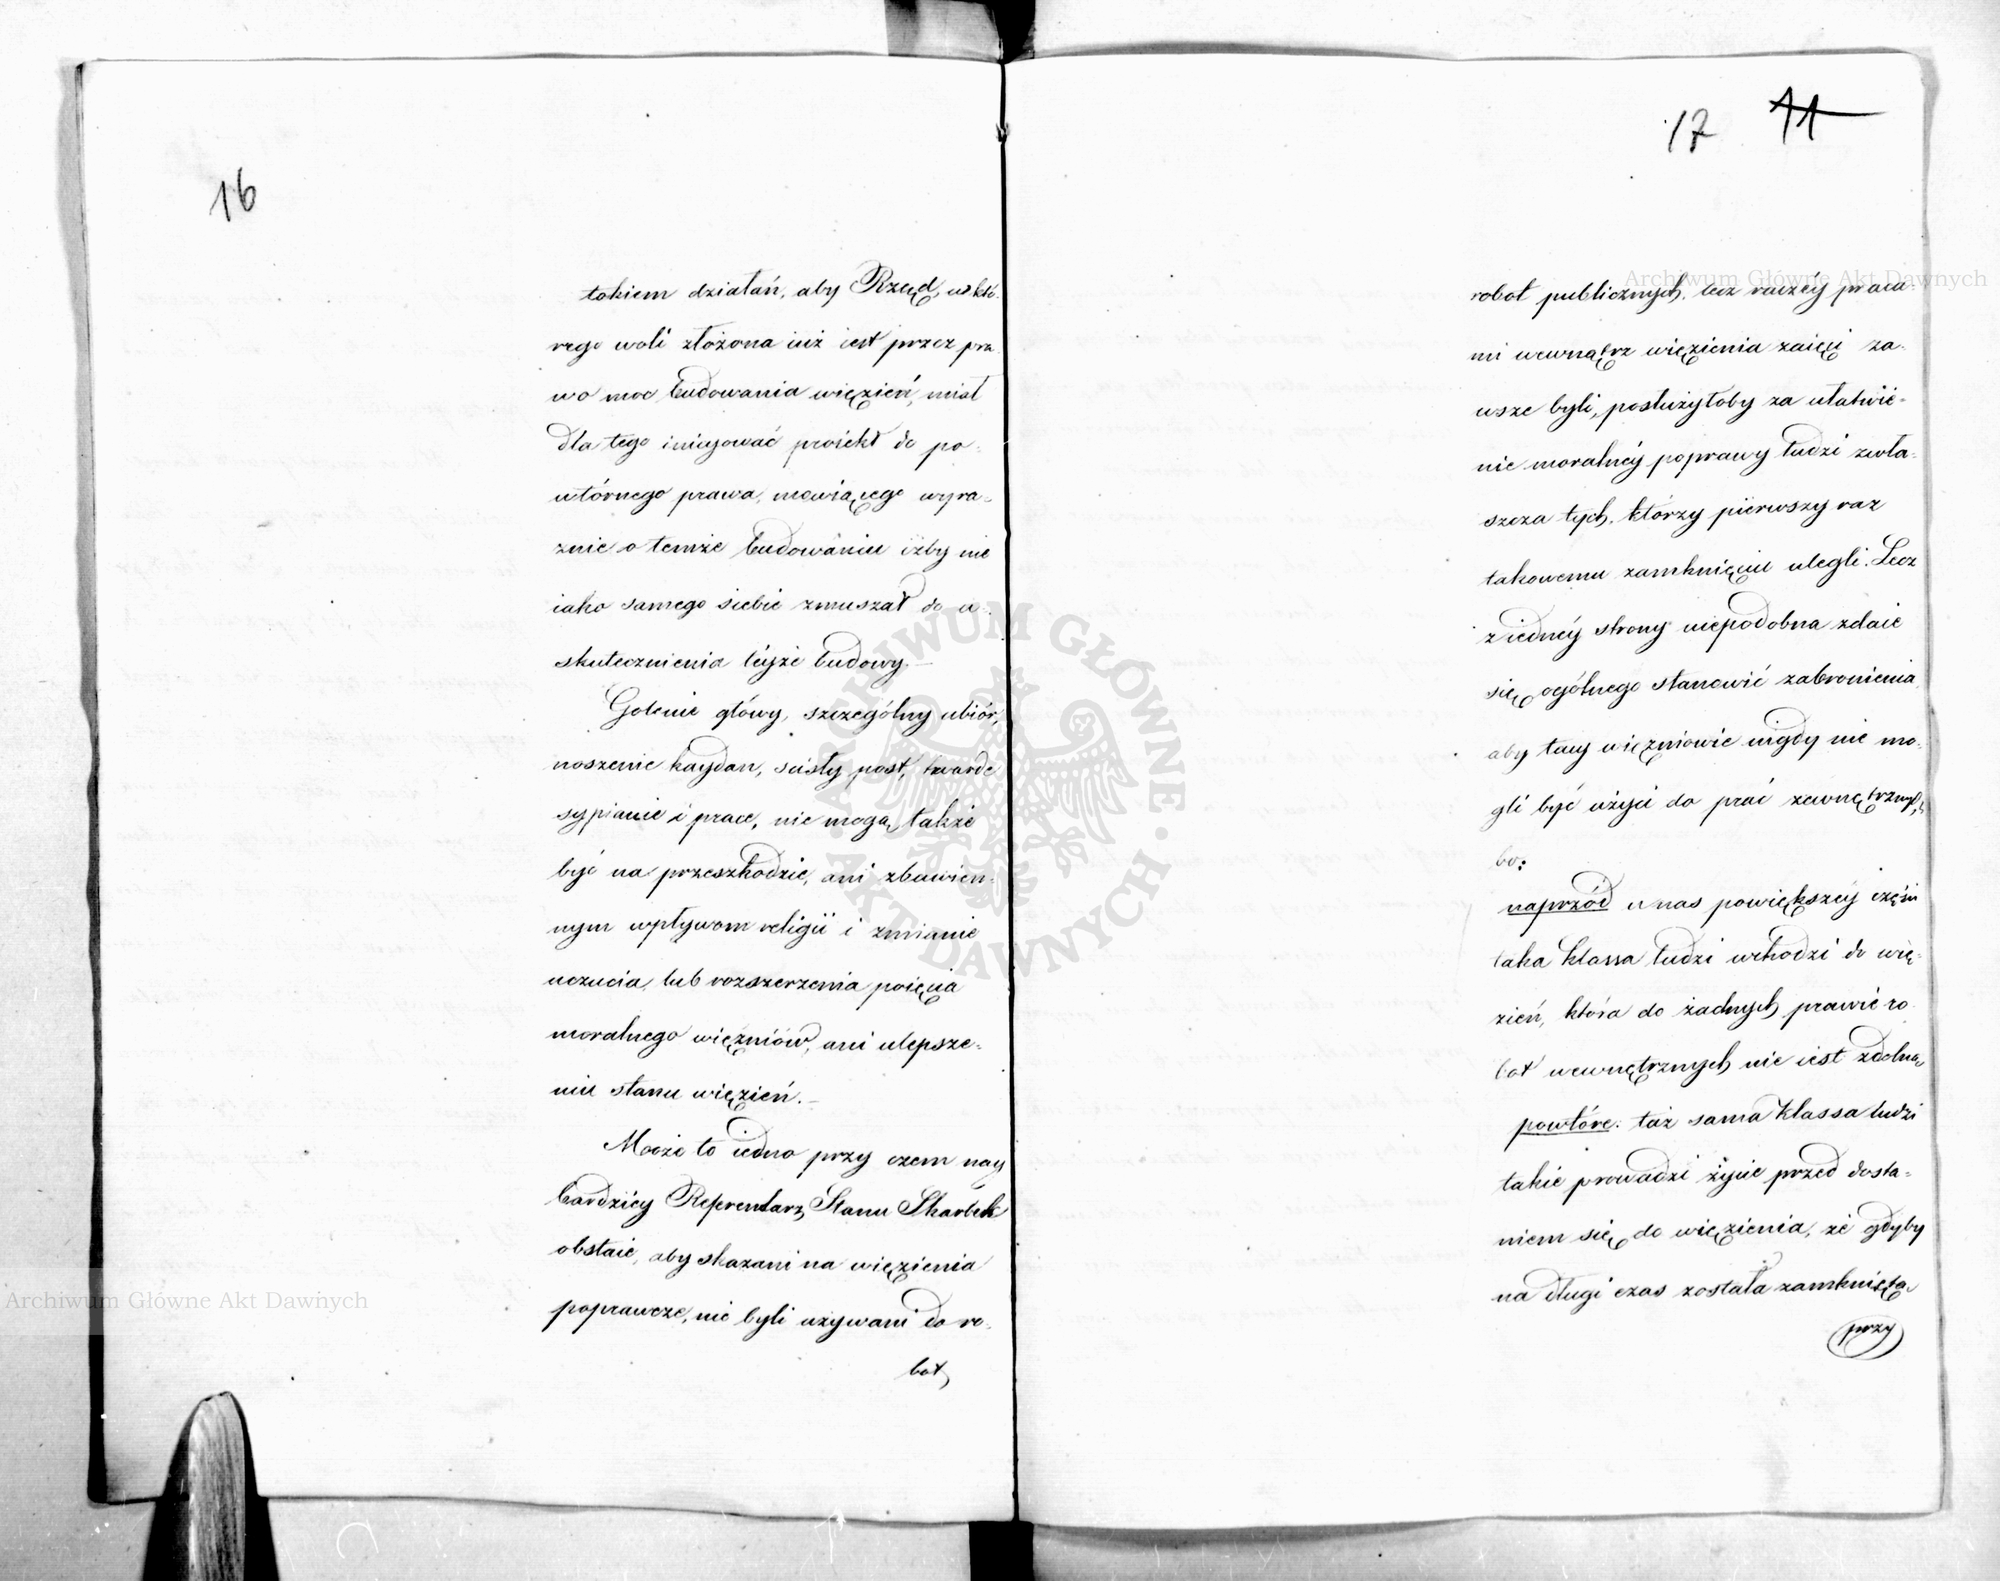 16
tokiem działań, aby Rząd, w któ-
rego woli złożona iuż iest przez pra-
wo moc budowania więzień, miał
dla tego iniugować proiekt do po-
wtórnego prawa, mówiącego wyra-
znie o temże budowaniu iżby nie
iako samego siebie zmuszał do u-
skutecznienia téyże budowy.—
Golenie głowy, szczególny ubiór,
noszenie kaydan, ścisły post, twarde
sypianie i prace, nie mogą także
być na przeszkodzie, ani zbawien-
nym wpływom religii i zmianie
uczucia, lub rozszerzenia poięcia
moralnego więźniów, ani ulepsze-
niu stanu więzień.—
Może to iedno przy czem nay
bardziey Referendarz Stanu Skarbek
obstaie, aby skazani na więzienia
poprawcze, nie byli używani do ro-
bot
17 11
robot publicznych, lecz raczéy praca-
mi wewnątrz więzienia zaięci za-
wsze byli, posłużyłoby za ułatwie-
nie moralnéy poprawy ludzi zwła-
szcza tych, którzy pierwszy raz
takowemu zamknięciu ulegli. Lecz
z iednéy strony niepodobna zdaie
się ogólnego stanowić zabronienia
aby tacy więźniowie nigdy nie mo-
gli być użyci do prac zewnętrznych,
bo:
naprzód u nas powiększéy części
taka klassa ludzi wchodzi do wię-
zień, która do żadnych prawie ro-
bot wewnętrznych nie iest zdolna,
powtóre: taż sama klassa ludzi
takie prowadzi życie przed dosta-
niem się do więzienia, że gdyby
na długi czas została zamknięta,
przy
Archiwum Główne Akt Dawnych
Archiwum Główne Akt Dawnych
ARCHIWUM GŁÓWNE AKT DAWNYCH